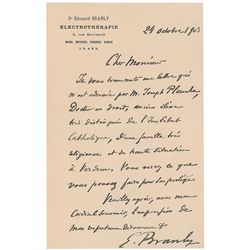 Dr Edouard BRANLY
ELECTROTHÉRAPIE
24 octobre 1903
Cher Monsieur
Je vous transmets une lettre qui
m'est adressée par M. Joseph Planche,
Docteur en droit, ancien élève
très distingué de l'Institut
Catholique, d'une famille très
religieuse et de haute situation
à Verdun. Vous verrez ce que
vous pouvez faire pour son protégé
Veuillez agréer, avec mon
cordial souvenir, l'expression de
mon respectueux dévouement
E. Branly